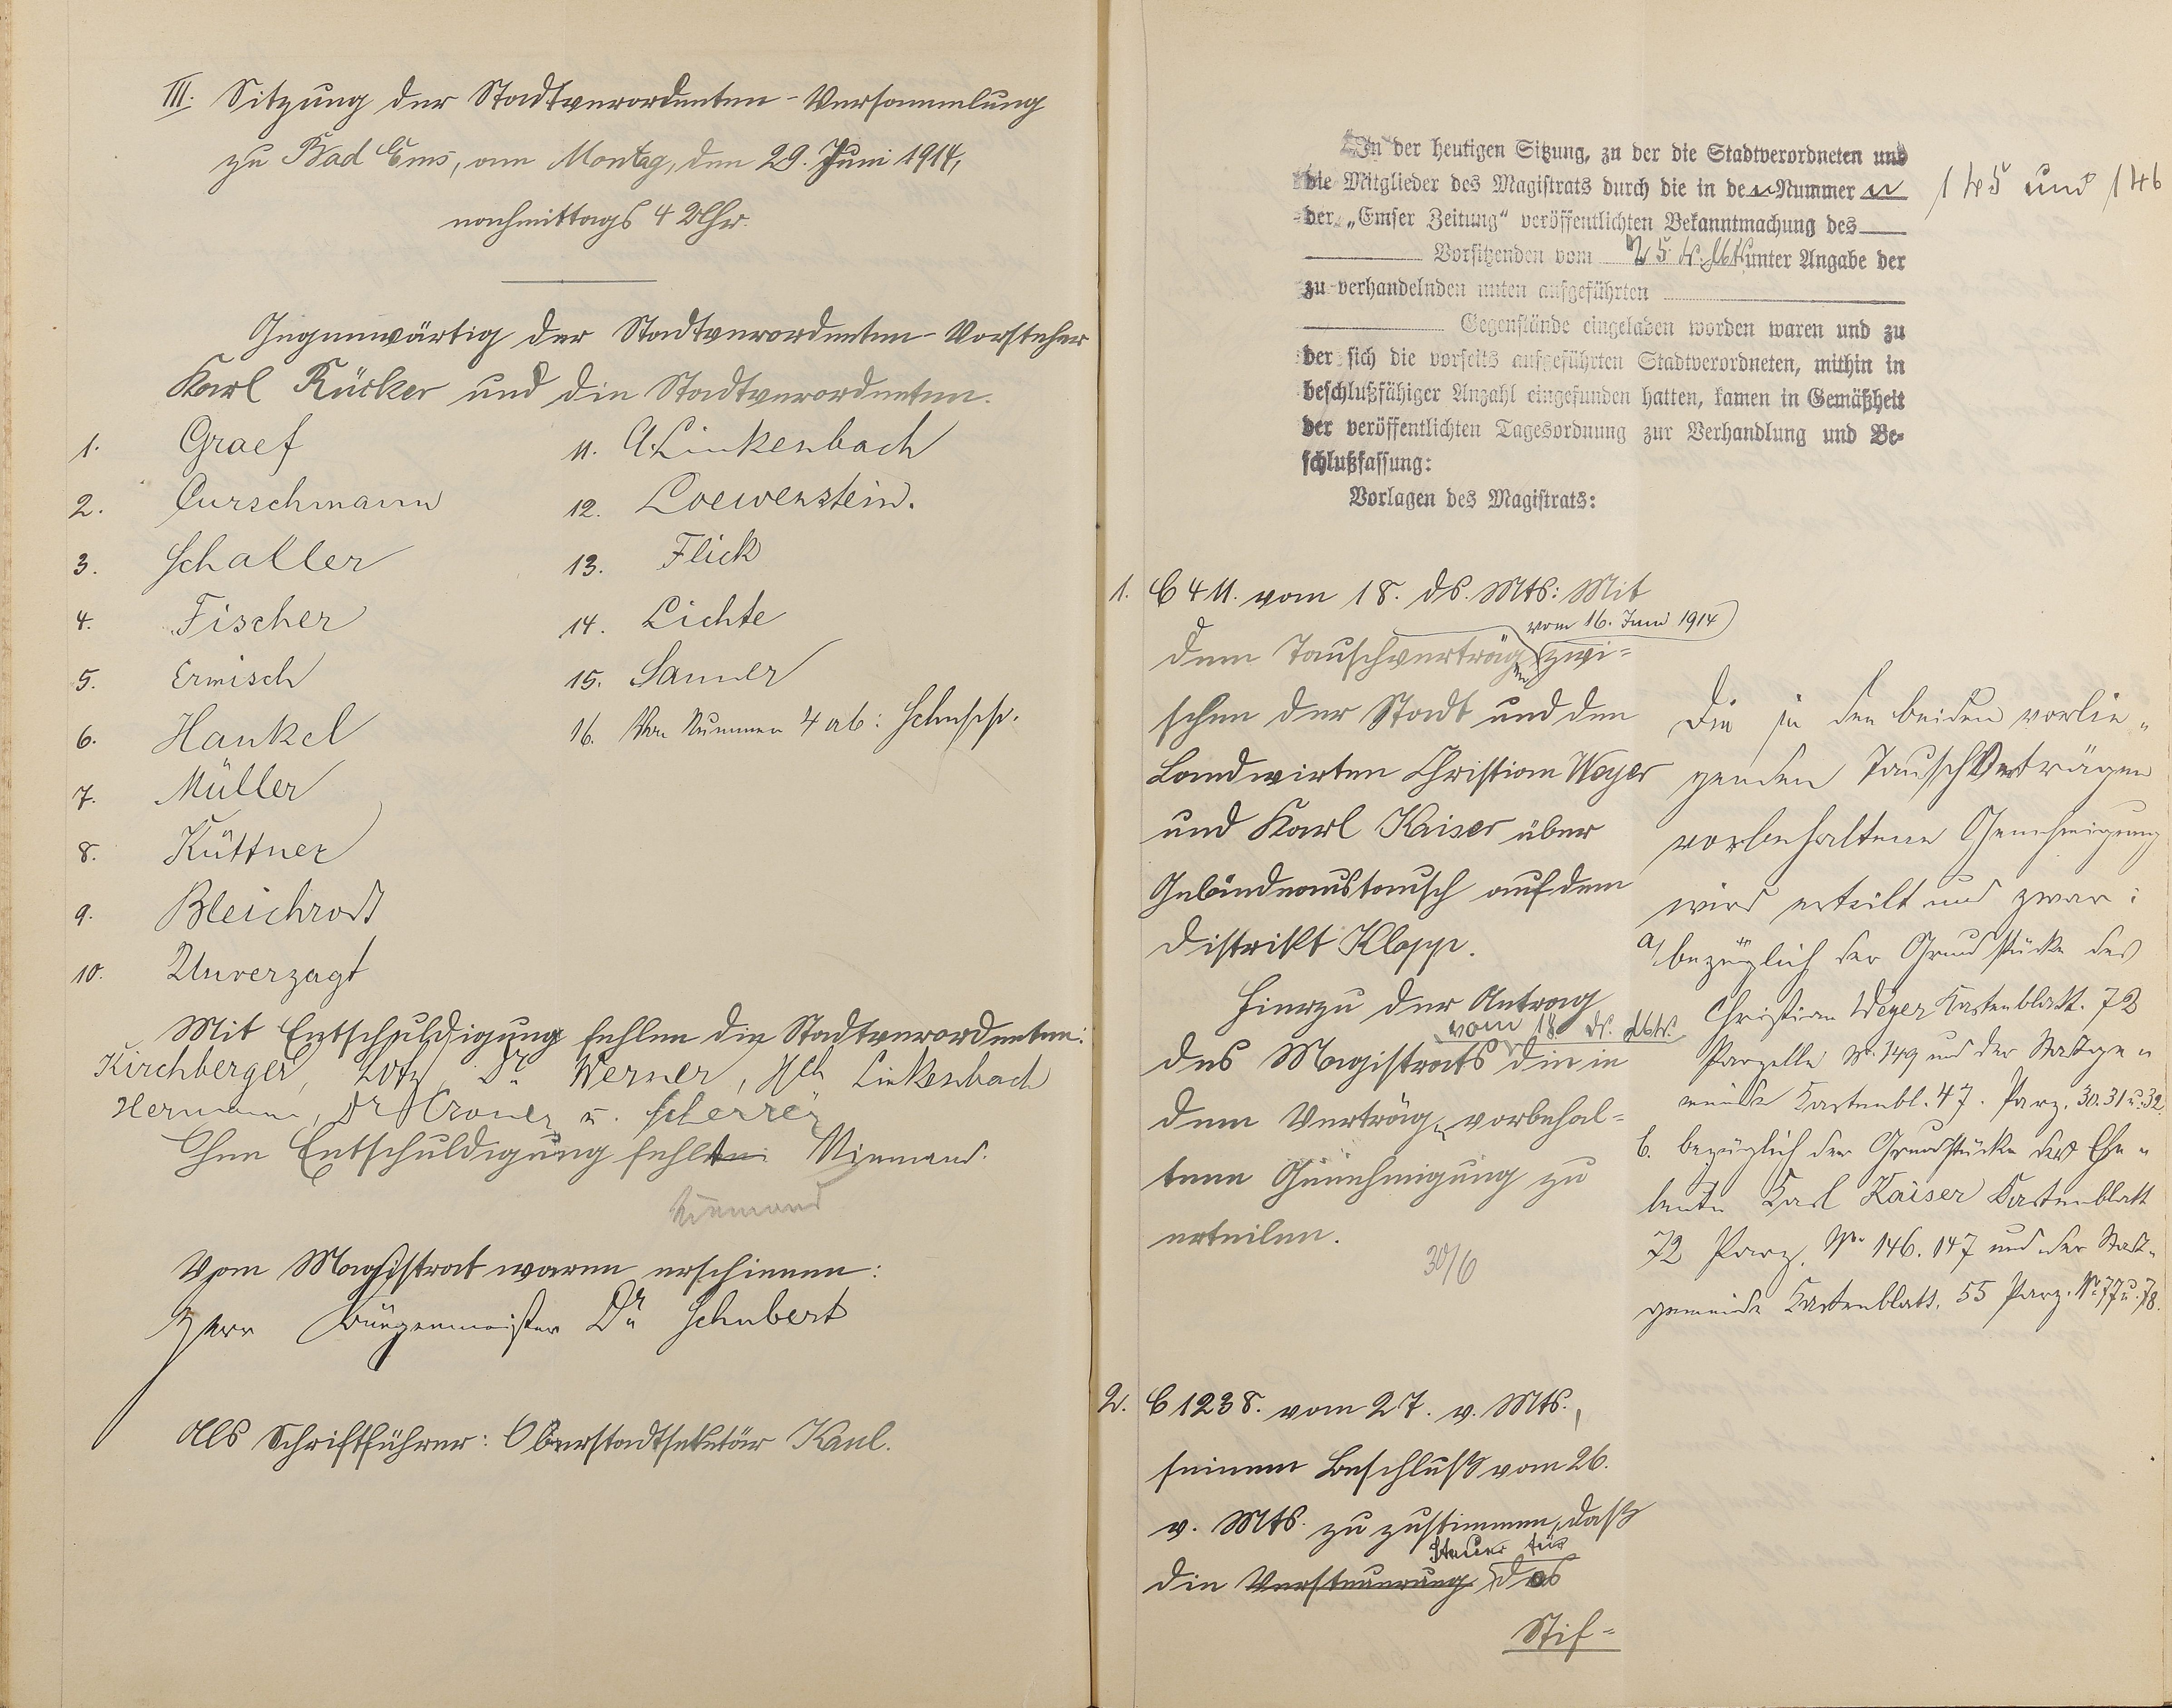 III. Sitzung der Stadtverordneten-Versammlung
zu Bad Ems, am Montag, den 29. Juni 1914,
nachmittags 4 Uhr.
Gegenwärtig der Stadtverordneten-Vorsteher
Karl Rücker und die Stadtverordneten.
1. Graef
2. Curschmann
3. Schaller
4. Fischer
5. Ermisch
6. Hankel
7. Müller
8. Küttner
9. Bleichrodt
10. Unverzagt
11. A Linkenbach
12. Loewenstein.
13. Flick
14. Lichte
15. Sanner
16. Von Nummer 4 ab: Schupp.
Mit Entschuldigung fehlen die Stadtverordneten:
Kirchberger, Lotz, Dr. Werner, Hch Linkenbach
Hermann, Dr. Croner u. Scherrer
Ohne Entschuldigung fehlten: Niemand.
Niemand
Vom Magistrat waren erschienen:
Herr Bürgermeister Dr. Schubert
Als Schriftführer: Oberstadtsekretär Kaul.
In der heutigen Sitzung, zu der die Stadtverordneten und
die Mitglieder des Magistrats durch die in den Nummern 145 und 146
der „Emser Zeitung“ veröffentlichten Bekanntmachung des
Vorsitzenden vom 25. d. Mts. unter Angabe der
zu verhandelnden unten aufgeführten
Gegenstände eingeladen worden waren und zu
der sich die vorseits aufgeführten Stadtverordneten, mithin in
beschlußfähiger Anzahl eingefunden hatten, kamen in Gemäßheit
der veröffentlichten Tagesordnung zur Verhandlung und Be-
schlußfassung:
Vorlagen des Magistrats:
1. C 411. vom 18. ds. Mts: Mit
vom 16. Juni 1914
dem Tauschverträgen zwi-
schen der Stadt und den
Landwirten Christian Weyer
und Karl Kaiser über
Geländeaustausch auf dem
Distrikt Klopp.
Hierzu der Antrag
vom 18. ds. Mts.
des Magistrats die in
dem Verträgen vorbehal-
tene Genehmigung zu
erteilen.
30/6
Die in den beiden vorlie-
genden Tauschverträgen
vorbehaltene Genehmigung
wird erteilt und zwar:
a/ bezüglich der Grundstücke des
Christian Weyer Kartenblatt. 72
Parzelle Nr. 149 und der Stadtge-
meinde Kartenbl. 47. Parz. 30. 31 u. 32.
b. bezüglich der Grundstücke der Ehe-
leute Karl Kaiser Kartenblatt
72 Parz. Nr. 146. 147 und der Stadt-
gemeinde Kartenblatt. 55 Parz. Nr. 77 u. 78.
2. C 1238. vom 27. v. Mts.,
seinem Beschluß vom 26.
v. Mts. zu zustimmen, daß
Steuer für
die Versteuerung das
Stif-